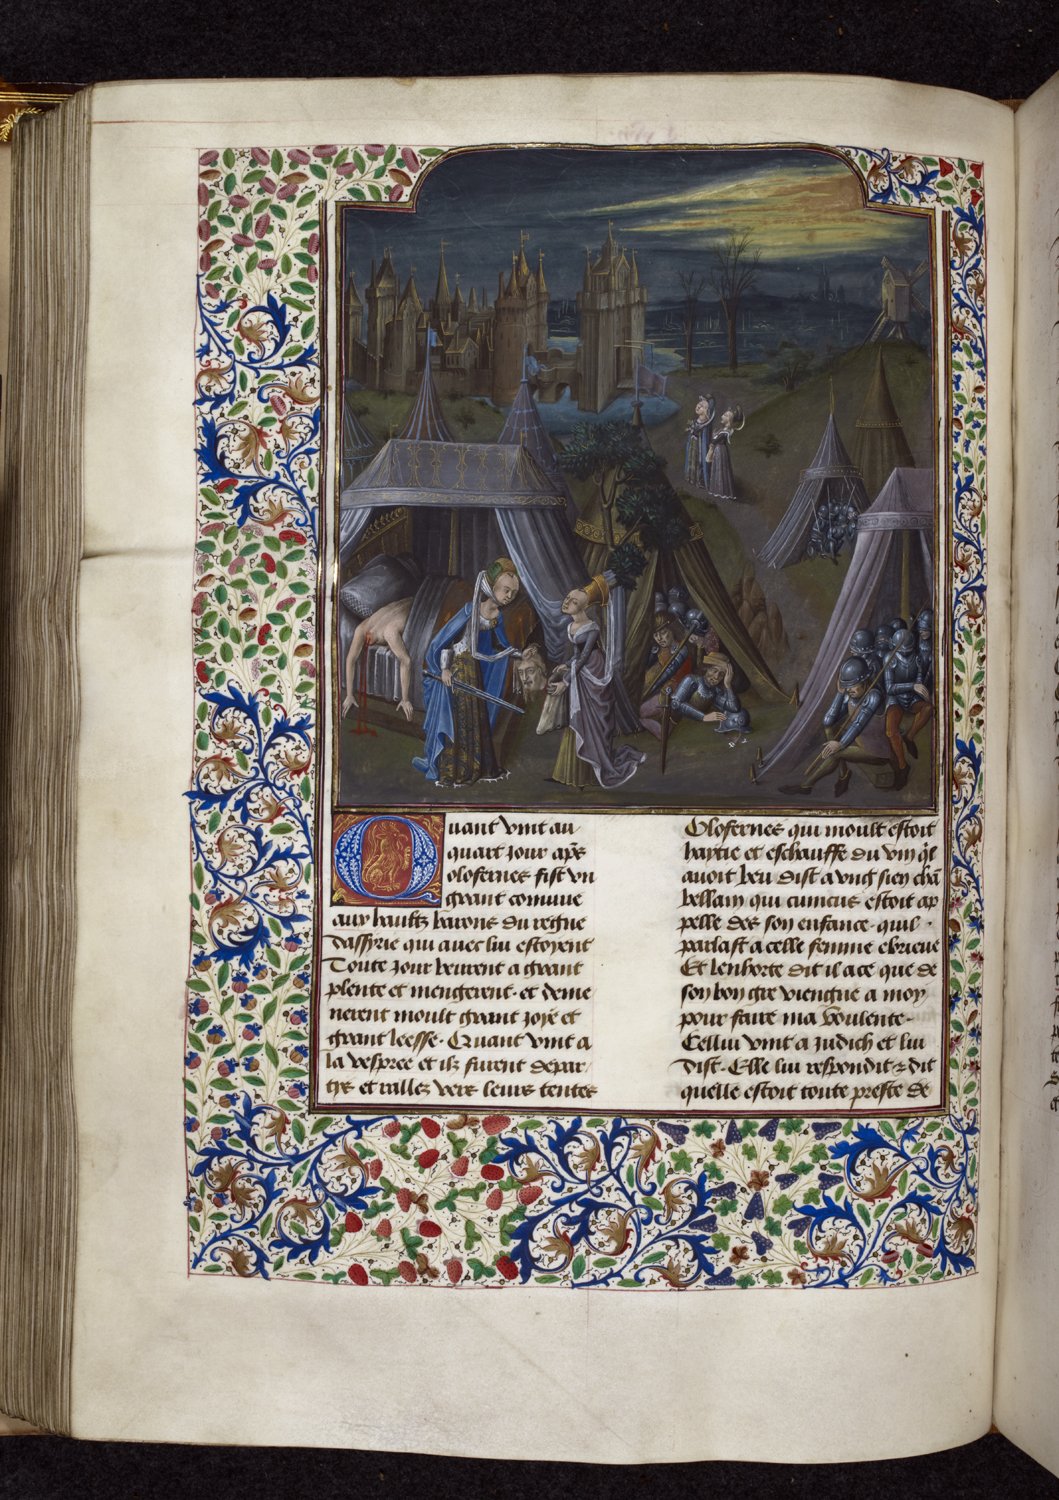 Quant vint au
quart jour apres
olofernes fist un
grant conuiue
aux haultz barons du regne
dassyrie qui auec lui estoyent
Toute jour beurent a grant
plente et mengerent. et deme
nerent moult grant joye et
grant leesse. Quant vint a
la vespree et ilz furent depar
tys et rallez vers leurs tentes
Olofernes qui moult estoit
haytie et eschauffe du vin q̄l
auoit beu dist a vng sien chā
bellain qui eunicus estoit ap
pelle des son enfance. quil
parlast a celle femme ebrieue
Et lenhorte dit il a ce que de
son bon gre viengne a moy
pour faire ma voulente.
Cellui vint a judich et lui
dist. Elle lui respondit ⁊ dit
quelle estoit toute preste de